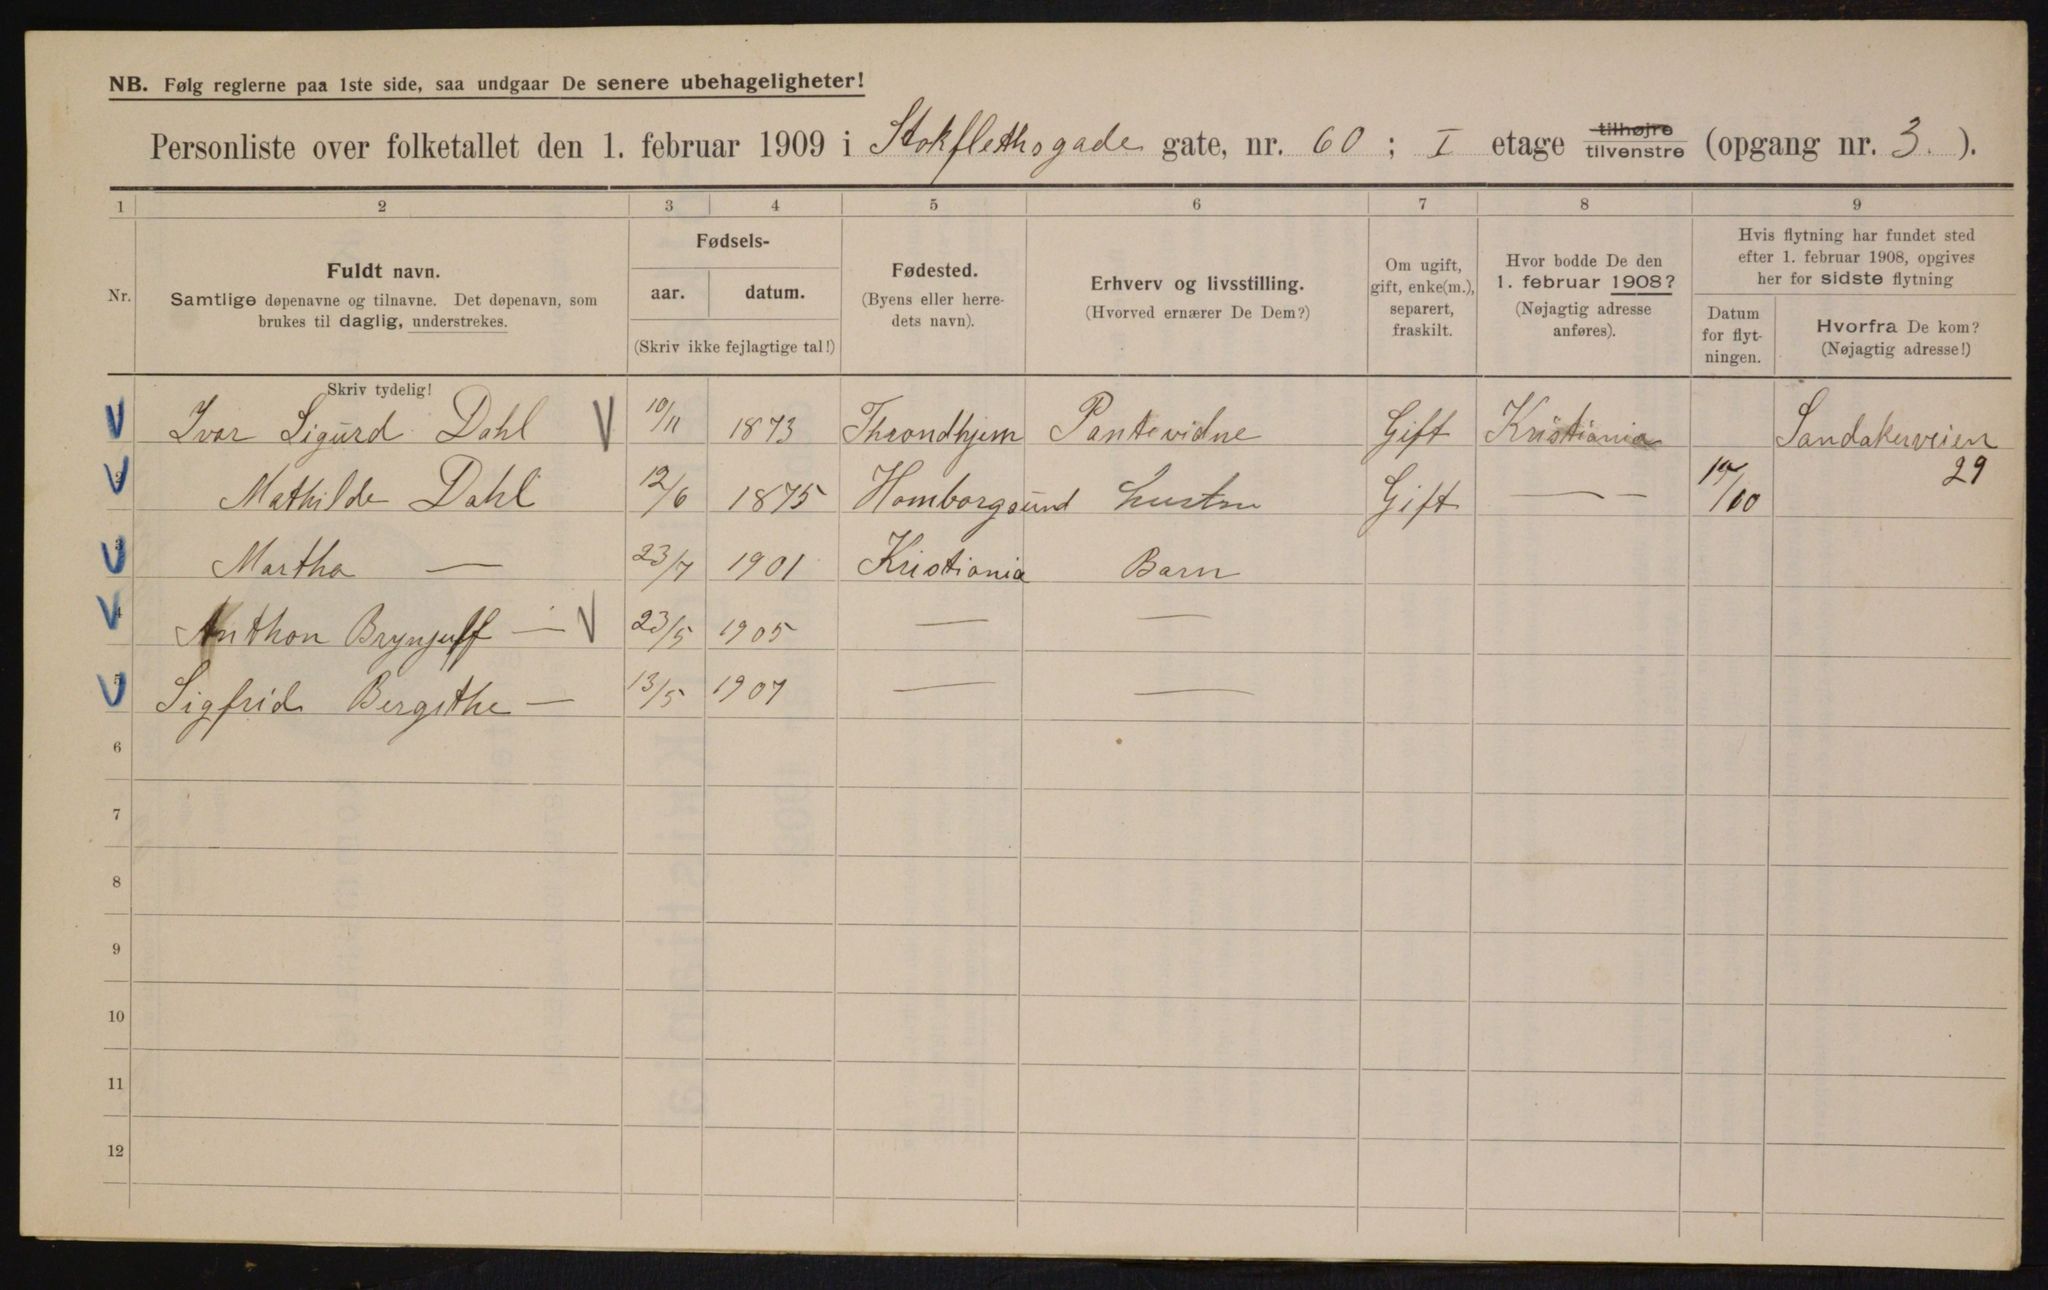 NB. Følg reglerne paa 1ste side, saa undgaar De senere ubehageligheter!
Personliste over folketallet den 1. februar 1909 i Stokflethsgade gate, nr. 60 ; I etage tilhøjre tilvenstre (opgang nr. 3. ).
1 2 3 4 5 6 7 8 9
Nr.
Fuldt navn.
Samtlige døpenavne og tilnavne. Det døpenavn, som
brukes til daglig, understrekes.
Skriv tydelig!
Fødsels-
aar. datum.
(Skriv ikke fejlagtige tal!)
Fødested.
(Byens eller herre-
dets navn).
Erhverv og livsstilling.
(Hvorved ernærer De Dem?)
Om ugift,
gift, enke(m.),
separert,
fraskilt.
Hvor bodde De den
1. februar 1908?
(Nøjagtig adresse
anføres).
Hvis flytning har fundet sted
efter 1. februar 1908, opgives
her for sidste flytning
Datum
for flyt-
ningen.
Hvorfra De kom?
(Nøjagtig adresse!)
Ivar Sigurd Dahl V 10/11 1873 Throndhjem Pantevidne Gift Kristiania Sandakerveien
2 Mathilde Dahl 12/6 1875 Homborgsund Gift — - /10 29
3 Martha — 23/7 1901 Kristiania Barn
4 Anthon Brynjulf — V 23/5 1905 — —
5 Sigfrid Bergithe — 13/5 1907 — —
6
7
8
9
10
11
12